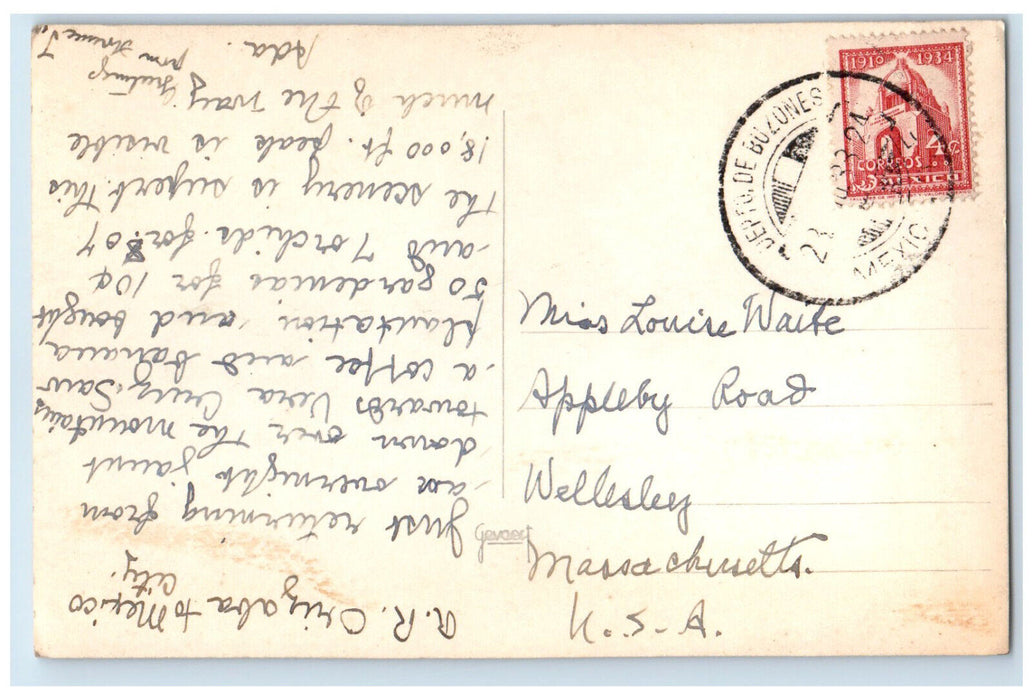 R.R. Orizaba to Mexico
City.
Just returning from
an overnight jaunt
down over the mountains
towards Vera Cruz. Saw
a coffee and banana
plantation and bought
50 gardenias for 10¢
and 7 orchids for
the scenery is superb. This
18,000 ft. peak is visible
much of the way.
Ada.
Greetings
from
Miss Louise Waite
Appleby Road
Wellesley
Massachusetts.
U.S.A.
Gevaert
1910 1934
4¢
CORREOS
MEXICO
DEPTO. DE BUZONES
MEXICO